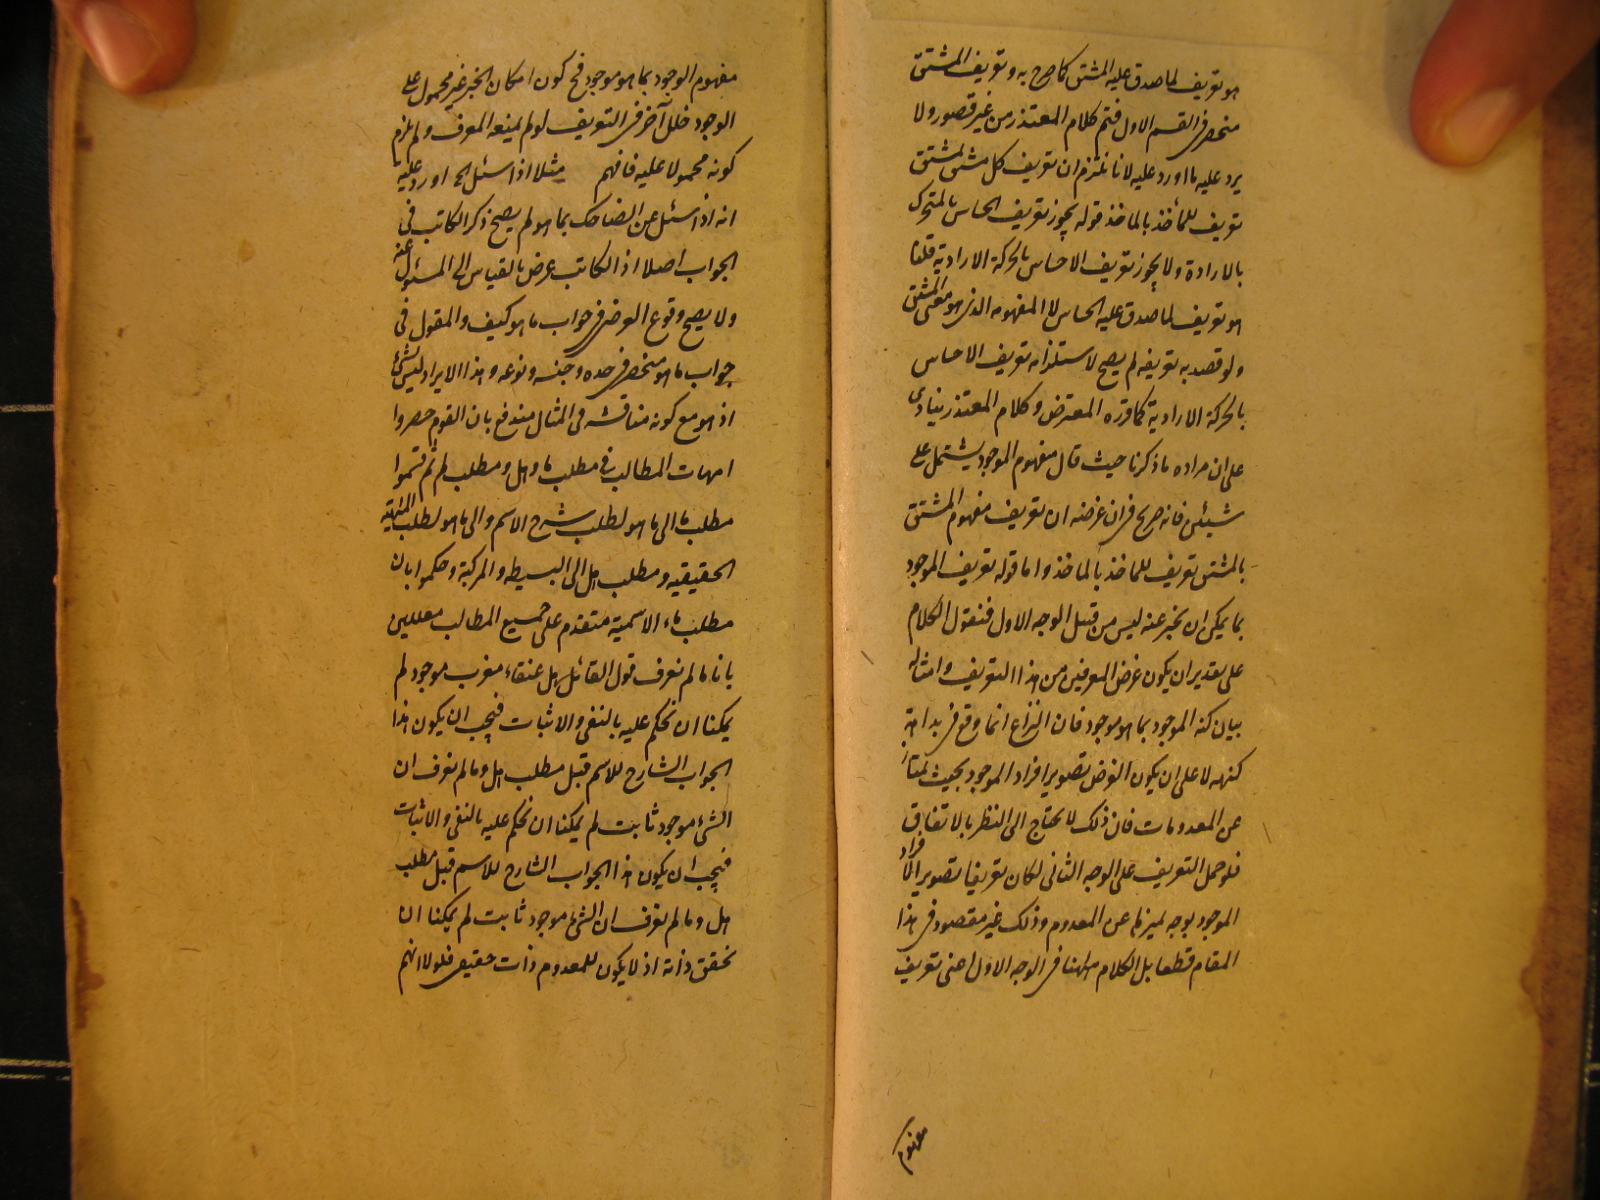 هو تعريف لما صدق عليه المشتق كما صرح به وتعريف المشتق
منحصر فى القسم الاول فتم كلام المعتذر من غير قصور ولا
يرد عليه ما اورد عليه لانا نلتزم ان تعريف كل مشتق لمشتق
تعريف للمأخذ بالماخذ قوله يجوز تعريف الحساس بالمتحرك
بالارادة ولا يجوز تعريف الاحساس بالحركة الارادية قلنا
هو تعريف لما صدق عليه الحساس لا المفهوم الذى هو معنى المشتق
ولو قصد به تعريفه لم يصح لاستلزامه تعريف الاحساس
بالحركة الارادية كما قرره المعترض وكلام المعتذر ينادى
على ان مراده ما ذكرنا حيث قال مفهوم الموجود يشتمل على
شيئين فانه صريح فى ان غرضه ان تعريف مفهوم المشتق
بالمشتق تعريف للماخذ بالماخذ واما قوله تعريف الموجود
بما يمكن ان يخبر عنه ليس من قبيل الوجه الاول فنقول الكلام
على تقدير ان يكون غرض المعرفين من هذا التعريف وامثاله
بيان كنه الموجود بما هو موجود فان النزاع انما وقع فى بداهة
كنهه لا على ان يكون الغرض تصوير افراد الموجود بحيث يمتاز
عن المعدومات فان ذلك لا يحتاج الى النظر بالاتفاق
فلو حمل التعريف على الوجه الثانى لكان تعريفا تصوير الافراد
الموجود بوجه يميزها عن المعدوم وذلك غير مقصود فى هذا
المقام قطعا بل الكلام ههنا فى الوجه الاول اعنى تعريف
مفهوم
مفهوم الموجود بما هو موجود فح كون امكان الخبر غير محمول على
الوجود خلل آخر فى التعريف لو لم يمنعه المعرف ولم يلتزم
كونه محمولا عليه فافهم مثلا اذا سئل الخ اورد عليه
انه اذا سئل عن الضاحك بما هو لم يصح ذكر الكاتب فى
الجواب اصلا اذ الكاتب عرض بالقياس الى المسئول عنه
ولا يصح وقوع العرض فى جواب ما هو كيف والمقول فى
جواب ما هو منحصر فى حده وجنسه ونوعه وهذا الايراد ليس بشئ
اذ هو مع كونه مناقشة فى المثال مندفع بان القوم حصروا
امهات المطالب فى مطلب ما وهل ومطلب لم ثم قسموا
مطلب ما الى ما هو لطلب شرح الاسم والى ما هو لطلب المهية
الحقيقيه ومطلب هل الى البسيطه والمركبة وحكموا بان
مطلب ماء الاسمية متقدم على جميع المطالب معللين
بانا ما لم نعرف قول القائل هل عنقاء مغرب موجود لم
يمكننا ان نحكم عليه بالنفى والاثبات فيجب ان يكون هذا
الجواب الشارح للاسم قبل مطلب هل وما لم نعرف ان
الشئ موجود ثابت لم يمكننا ان نحكم عليه بالنفى والاثبات
فيجب ان يكون هذا الجواب الشارح للاسم قبل مطلب
هل وما لم نعرف ان الشئ موجود ثابت لم يمكننا ان
نحقق ذاته اذ لا يكون للمعدوم ذات حقيقى فلولا انهم